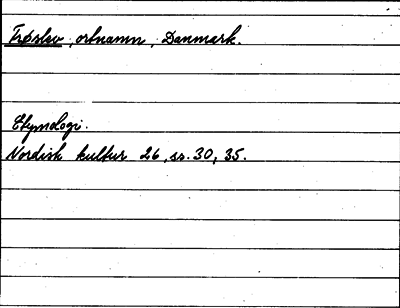 Trøslev, ortnamn, Danmark.
Etymologi.
Nordisk kultur 26, ss. 30, 35.